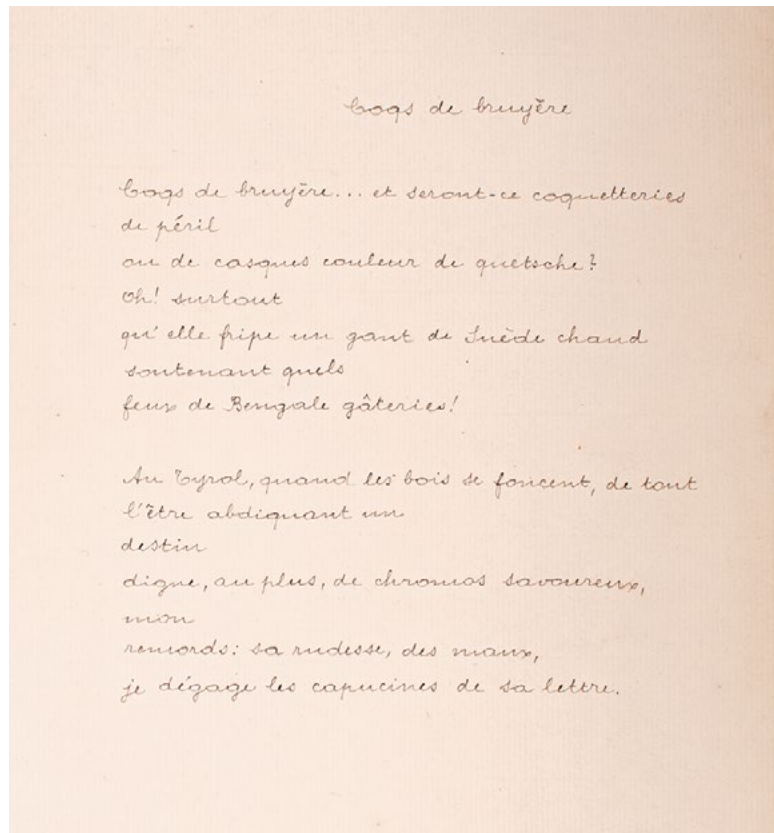 Coqs de bruyère
Coqs de bruyère... et seront-ce coquetteries
de péril
ou de casques couleur de quetsche?
Oh! surtout
qu'elle fripe un gant de Suède chaud
soutenant quels
feux de Bengale gâteries!
Au Tyrol, quand les bois se foncent, de tout
l'être abdiquant un
destin
digne, au plus, de chromos savoureux,
mon
remords: sa rudesse, des maux,
je dégage les capucines de sa lettre.